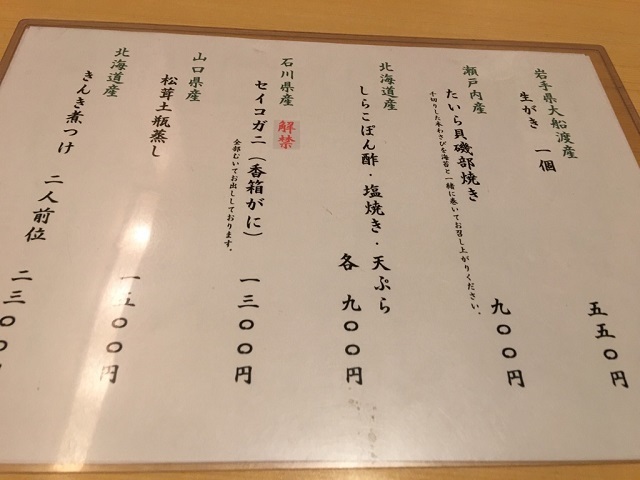 岩手県大船渡産
生がき 一個 五五〇円
瀬戸内産
たいら貝磯部焼き 九〇〇円
千切りした本わさびを海苔と一緒に巻いてお召し上がりください。
北海道産
しらこぽん酢・塩焼き・天ぷら 各 九〇〇円
石川県産 解禁
セイコガニ（香箱がに） 一三〇〇円
全部むいてお出ししております。
山口県産
松茸土瓶蒸し 一五〇〇円
北海道産
きんき煮つけ 二人前位 二三〇〇